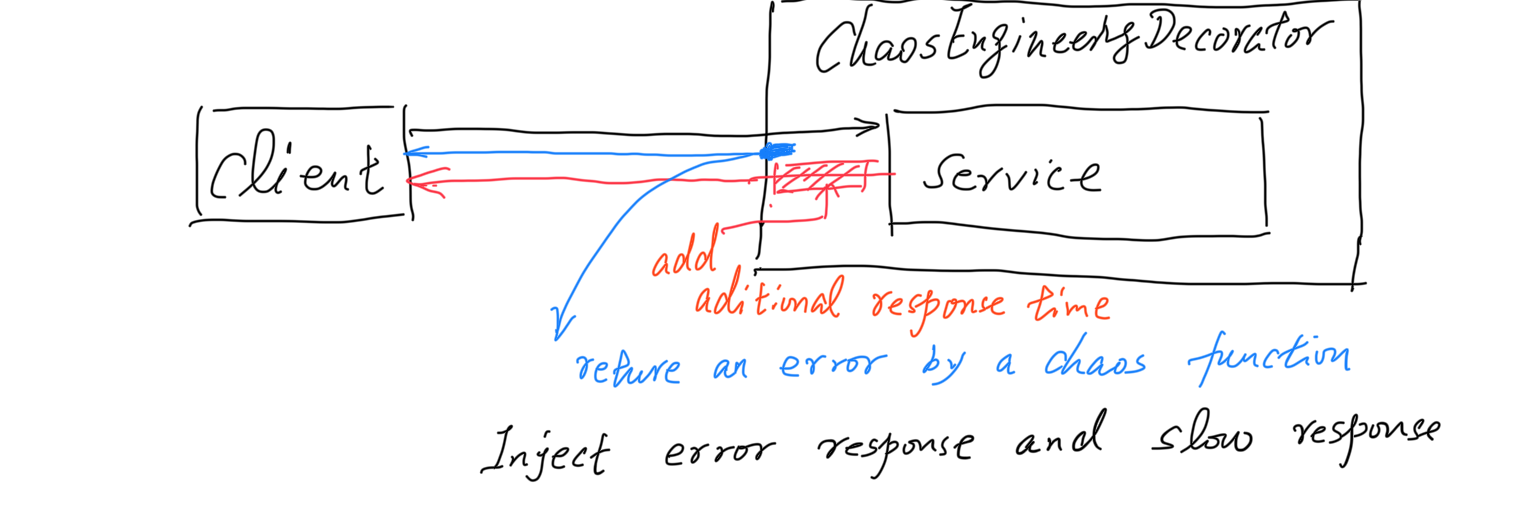 ChaosEngineeringDecorator
Client
Service
add
aditional response time
reture an error by a chaos function
Inject error response and slow response